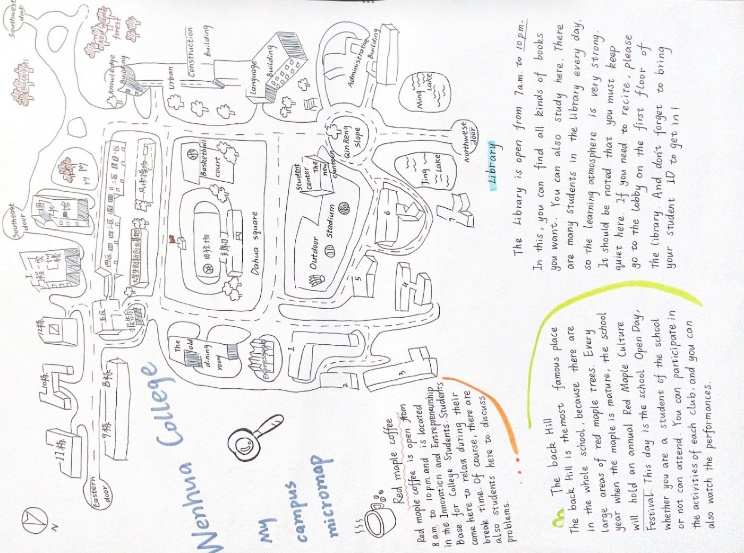 Wenhua College
My
campus
micromap
N
Eastern
door
11栋
10栋
9栋
8栋
Southeast
door
Southwest
door
Knowledge
Building
Urban
Construction
Building
Language
Building
Administrative
Building
Ming
Lake
Jing
Lake
Northwest
door
Qin Reng
Slope
Basketball
court
Student
Center
The
new
Outdoor
Stadium
Dahua square
The
old
dining
room
1
2
3
4
5
6
7
Red maple coffee
Red maple coffee is open from
8 a.m. to 10 p.m. and is located
in the Innovation and Entrepreneurship
Base for College Students. Students
come here to relax during their
break time. Of course, there are
also students here to discuss
problems.
The back Hill
The back Hill is the most famous place
in the whole school, because there are
large areas of red maple trees. Every
year when the maple is mature, the school
will hold an annual Red Maple Culture
Festival. This day is the school Open Day,
whether you are a student of the school
or not can attend. You can participate in
the activities of each club, and you can
also watch the performances.
Library
The Library is open from 7a.m. to 10p.m.
In this, you can find all kinds of books
you want. You can also study here. There
are many students in the Library every day.
so the learning atmosphere is very strong.
It should be noted that you must keep
quiet here. If you need to recite, please
go to the lobby on the first floor of
the library. And don't forget to bring
your student ID to get in!